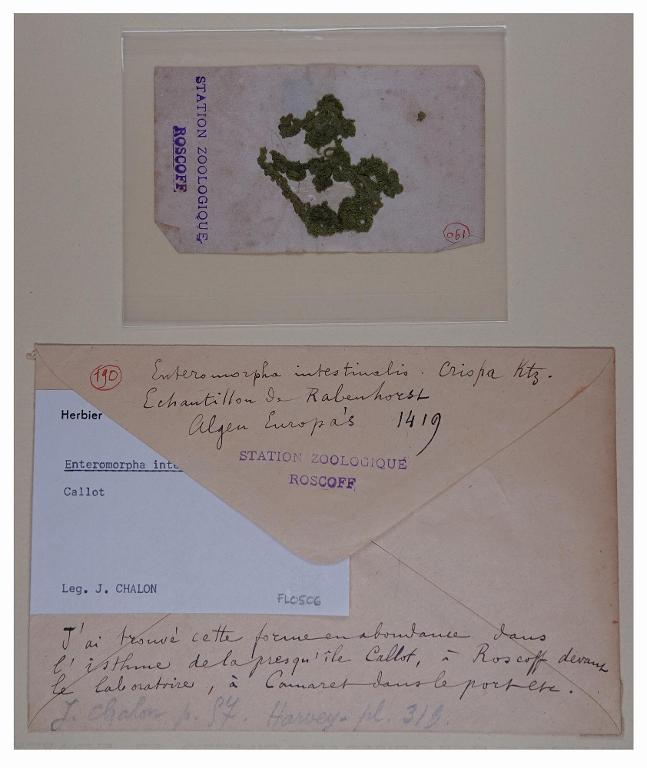 STATION ZOOLOGIQUE
ROSCOFF
190
190
Enteromorpha intestinalis. Crispa Ktz.
Echantillon de Rabenhorst
Algen Europa's 1419
STATION ZOOLOGIQUE
ROSCOFF
Herbier
Enteromorpha inte
Callot
Leg. J. CHALON
FL0506
J'ai trouvé cette forme en abondance dans
l'isthme de la presqu'île Callot, à Roscoff devant
le laboratoire, à Camaret dans le port etc.
J. Chalon p. 57. Harvey - pl. 319.